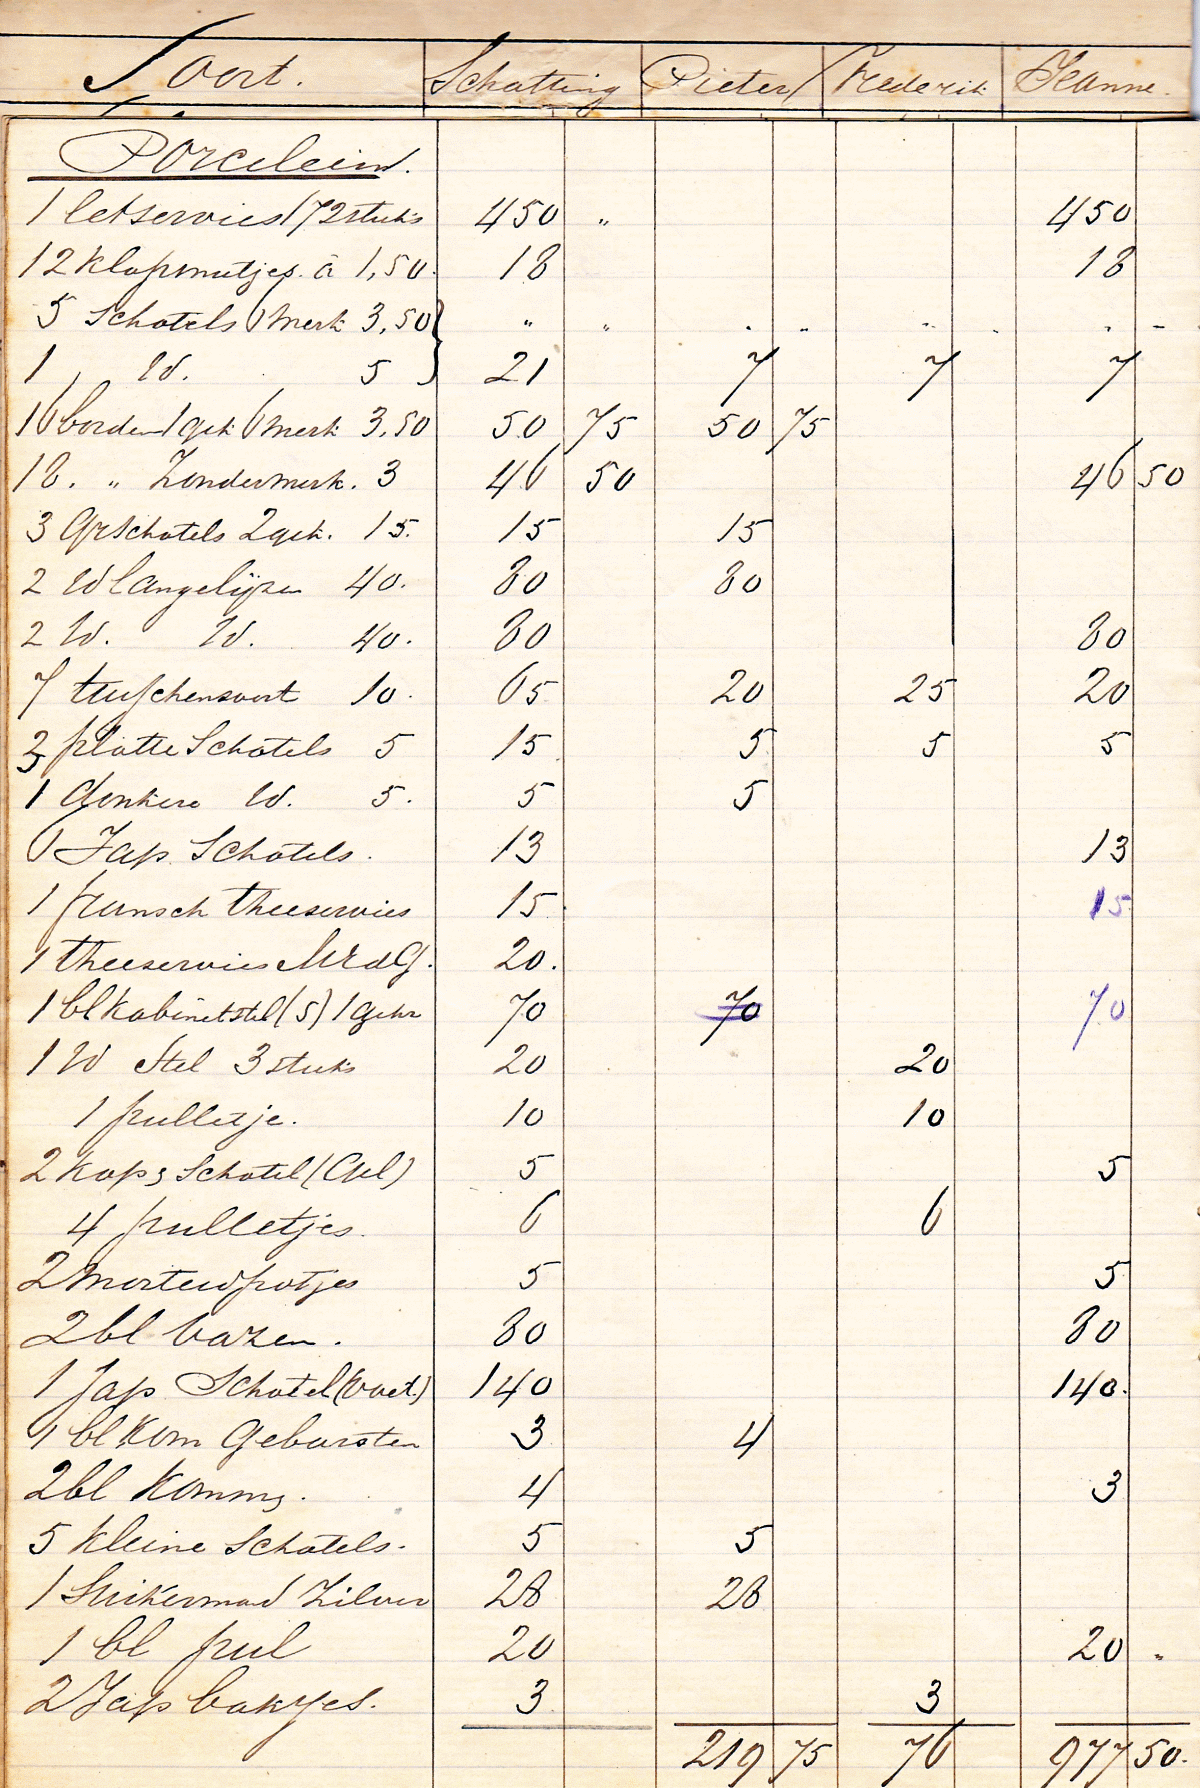 Soort. Schatting Pieter Frederik Jeanne.
Porcelein.
1 eetservies (72 stuks 450 " 450
12 Klapmutjes à 1,50. 18 18
5 Schotels 6 merk 3,50 " " " " " " " "
1 id. 5 21 7 7 7
16 borden 1 gek 6 merk 3,50 50 75 50 75
18. " Zondermerk. 3 46 50 46 50
3 Gr Schotels 2 gek. 15. 15 15
2 id langelijzen 40. 80 80
2 id. id. 40. 80 80
7 tusschensoort 10. 65 20 25 20
3 platte Schotels 5 15 5 5 5
1 donkere id. 5. 5 5
6 Jap. Schotels. 13 13
1 fransch theeservies 15 15
1 theeservies MrdG. 20.
1 bl Kabinetstel (5) 1 gekr 70 70 70
1 id Stel 3 stuks 20 20
1 pulletje. 10 10
2 Kop & Schotel (Gel) 5 5
4 pulletjes. 6 6
2 Mosterdpotjes 5 5
2 bl Vazen. 80 80
1 Jap Schotel (voet.) 140 140.
1 bl Kom Gebarsten 3 4
2 bl Komms. 4 3
5 Kleine Schotels. 5 5
1 Suikermand Zilver 28 28
1 bl pul 20 20 "
2 Jap bakjes. 3 3
219 75 76 977 50.